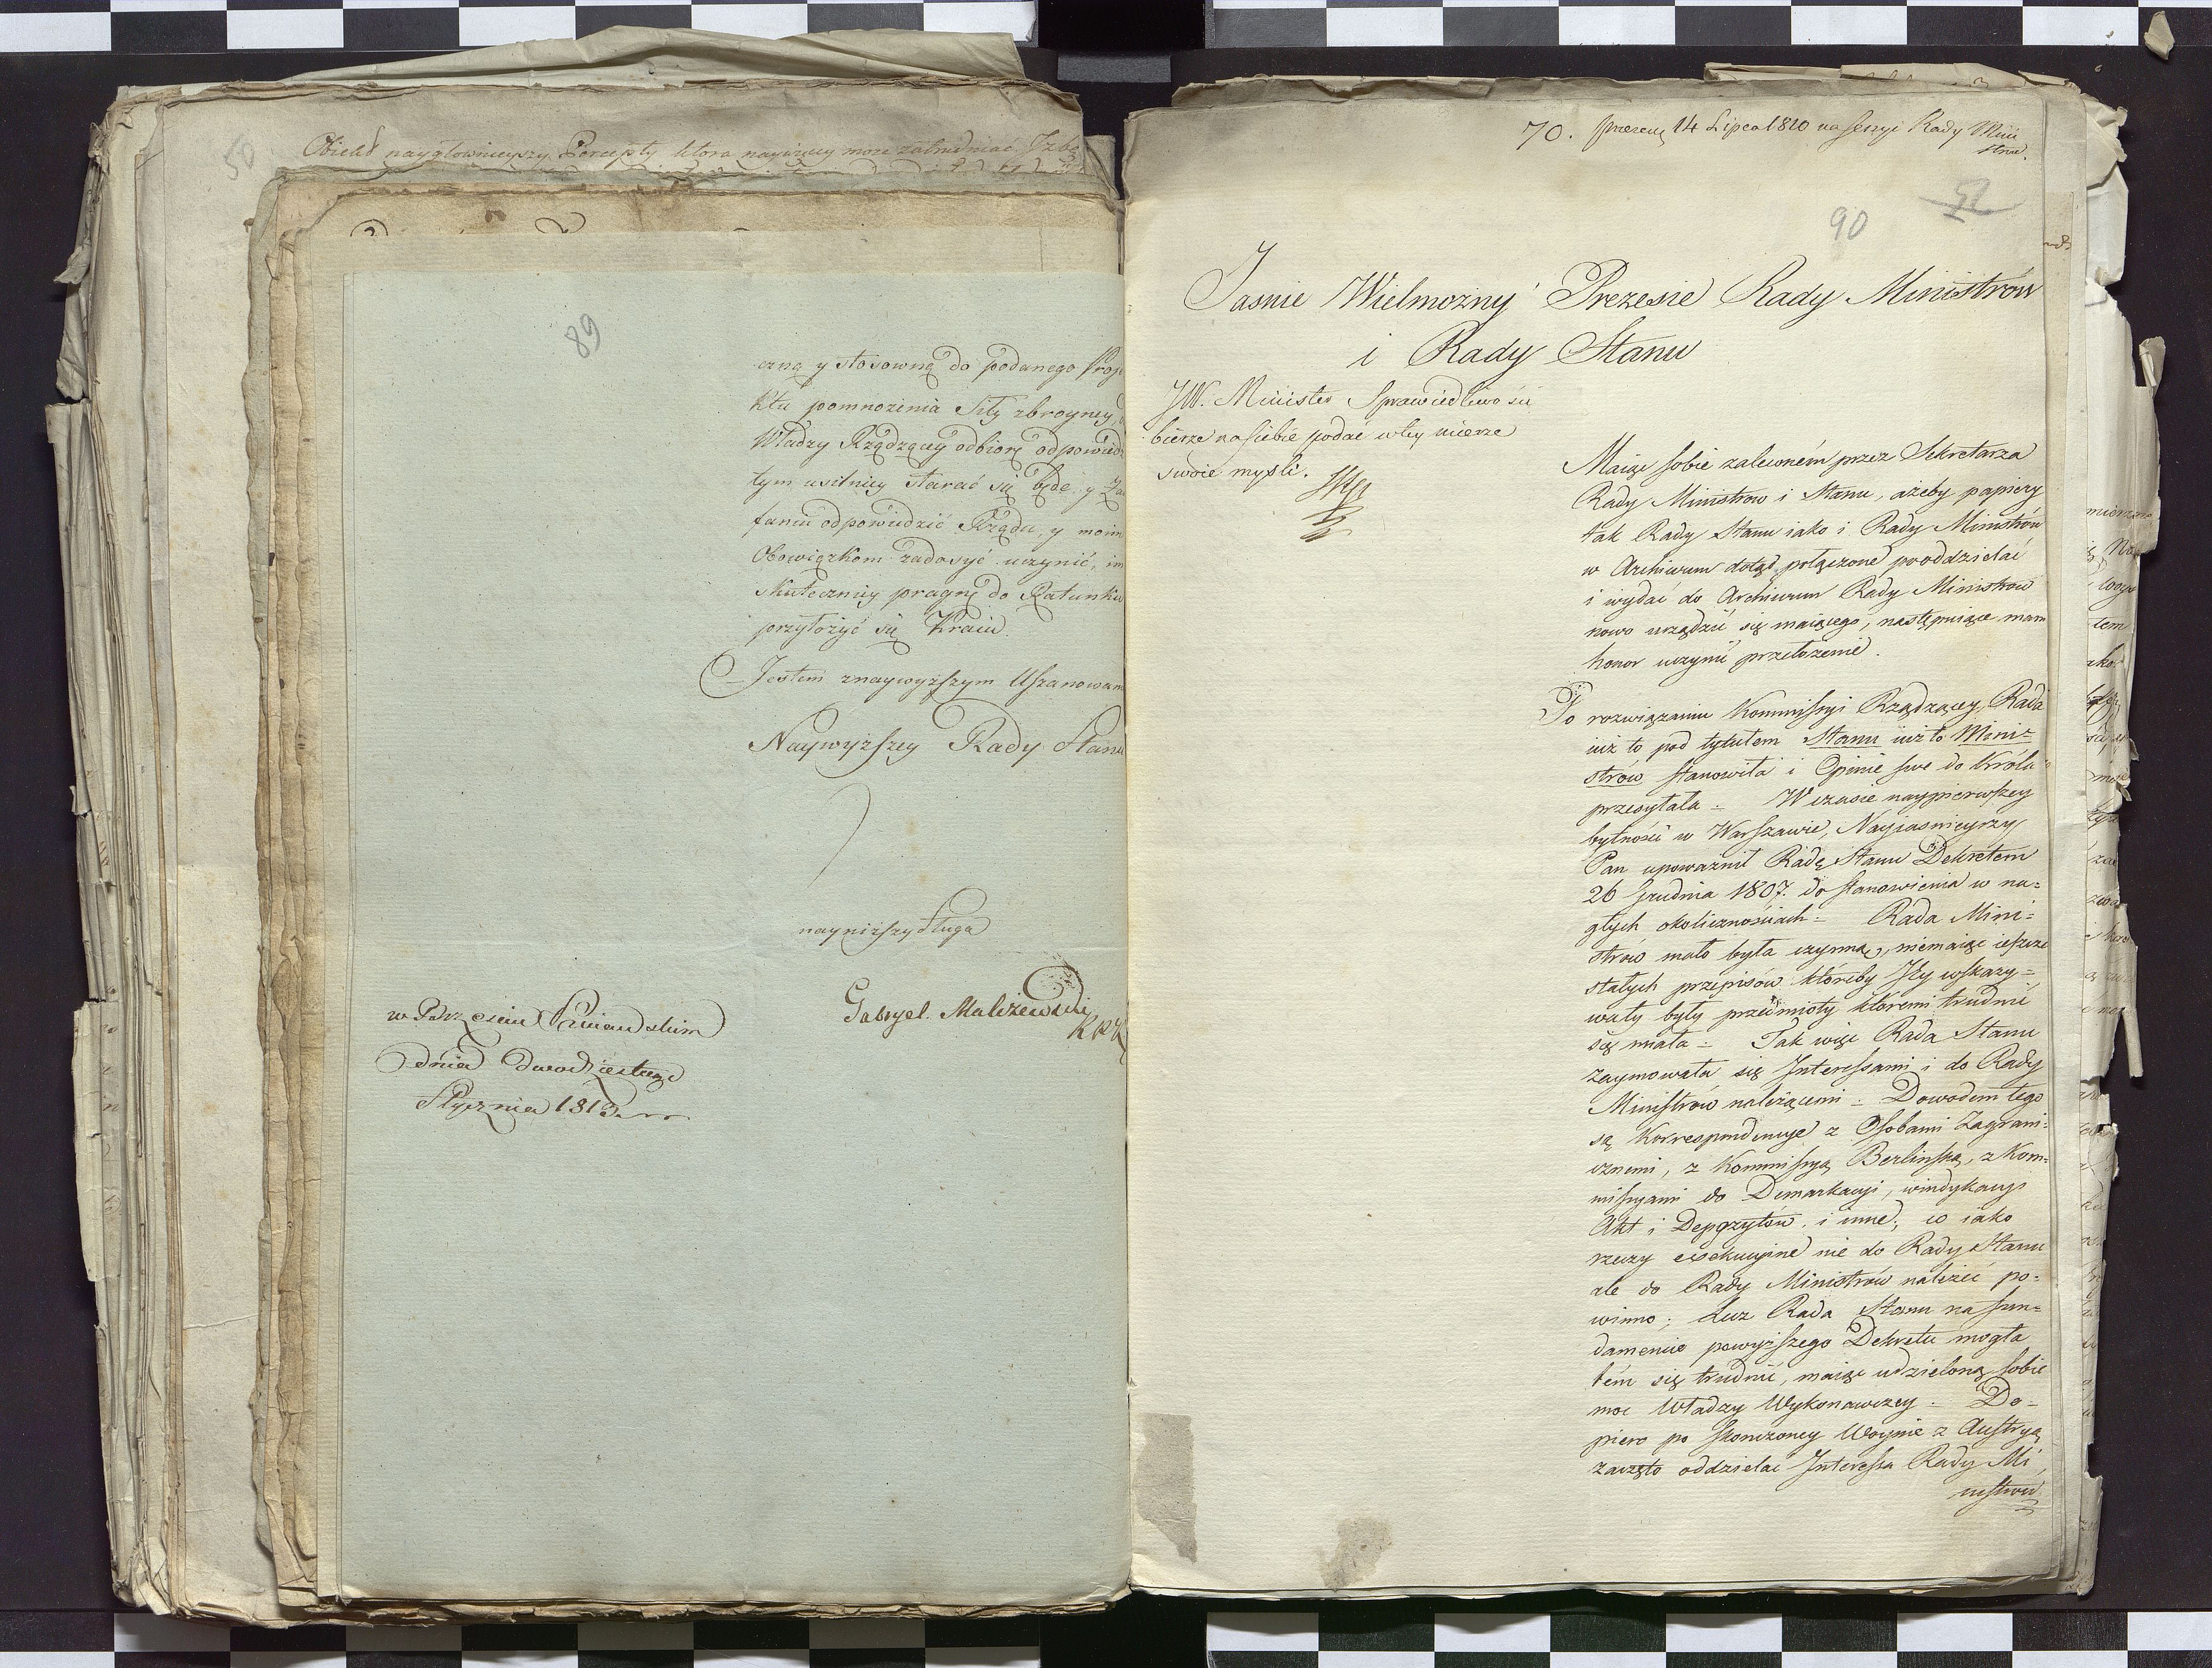 50
Obiekt naygłownieyszy Percepty ktora naywięcy może zatrudniać Izbę
89
czną y stosowną do podanego Proje
ktu pomnożenia Siły zbroyney,
Władzy Rządzącey odbiorę odpowied
tym usilniey starać się będę y Za
faniu odpowiedzić Rządu, y moim
Obowiązkom zadosyć uczynić, im
skuteczniey pragnę do Ratunku
przyłożyć się Kraiu.
Jestem znaywyższym Uszanowan
Naywyższey Rady Stanu
nayniższy Sługa
Gabryel
w Brześciu Kuiawskim
dnia Dwudziestego
Stycznia 1813
70. prezen. 14 Lipca 1810 na sessyi Rady Mini
strów.
52
90
Jaśnie Wielmożny Prezesie Rady Ministrów
i Rady Stanu
JW. Minister Sprawiedliwości
bierze na siebie podać w tey mierze
swoie myśli.
Maiąc sobie zaleconém przez Sekretarza
Rady Ministrów i Stanu, ażeby papiery
tak Rady Stanu iako i Rady Ministrów
w Archiwum dotąd połączone pooddzielać
i wydać do Archiwum Rady Ministrów
nowo urządzić się maiącego, następuiące mam
honor uczynić przełożenie.
Po rozwiązaniu Kommissyi Rządzącey, Rada
iuż to pod tytułem Stanu iuż to Mini=
strów stanowiła i Opinie swe do Króla
przesyłała = W czasie naypierwszey
bytności w Warszawie, Nayiaśnieyszy
Pan upoważnił Radę Stanu Dekretem
26 Grudnia 1807. do stanowienia w na=
głych okolicznościach = Rada Mini=
strów mało była czynną, niemaiąc ieszcze
stałych przepisów któreby Jey wskazy=
wały były przedmioty któremi trudnić
się miała = Tak więc Rada Stanu
zaymowała się Interessami i do Rady
Ministrów należącemi = Dowodem tego
są Korrespondencye z Osobami Zagrani=
cznemi, z Kommissyą Berlińską, z Kom=
missyami do Demarkacyi, windykacyi
Akt i Depozytów i inne; co iako
rzeczy exekucyine nie do Rady Stanu
ale do Rady Ministrów należeć po=
winno; Lecz Rada Stanu na fun=
damencie powyższego Dekretu mogła
tém się trudnić, maiąc udzieloną sobie
moc Władzy Wykonawczey = Do=
piero po skończoney Woynie z Austryą
zaczęto oddzielać Interessa Rady Mi
nistrów